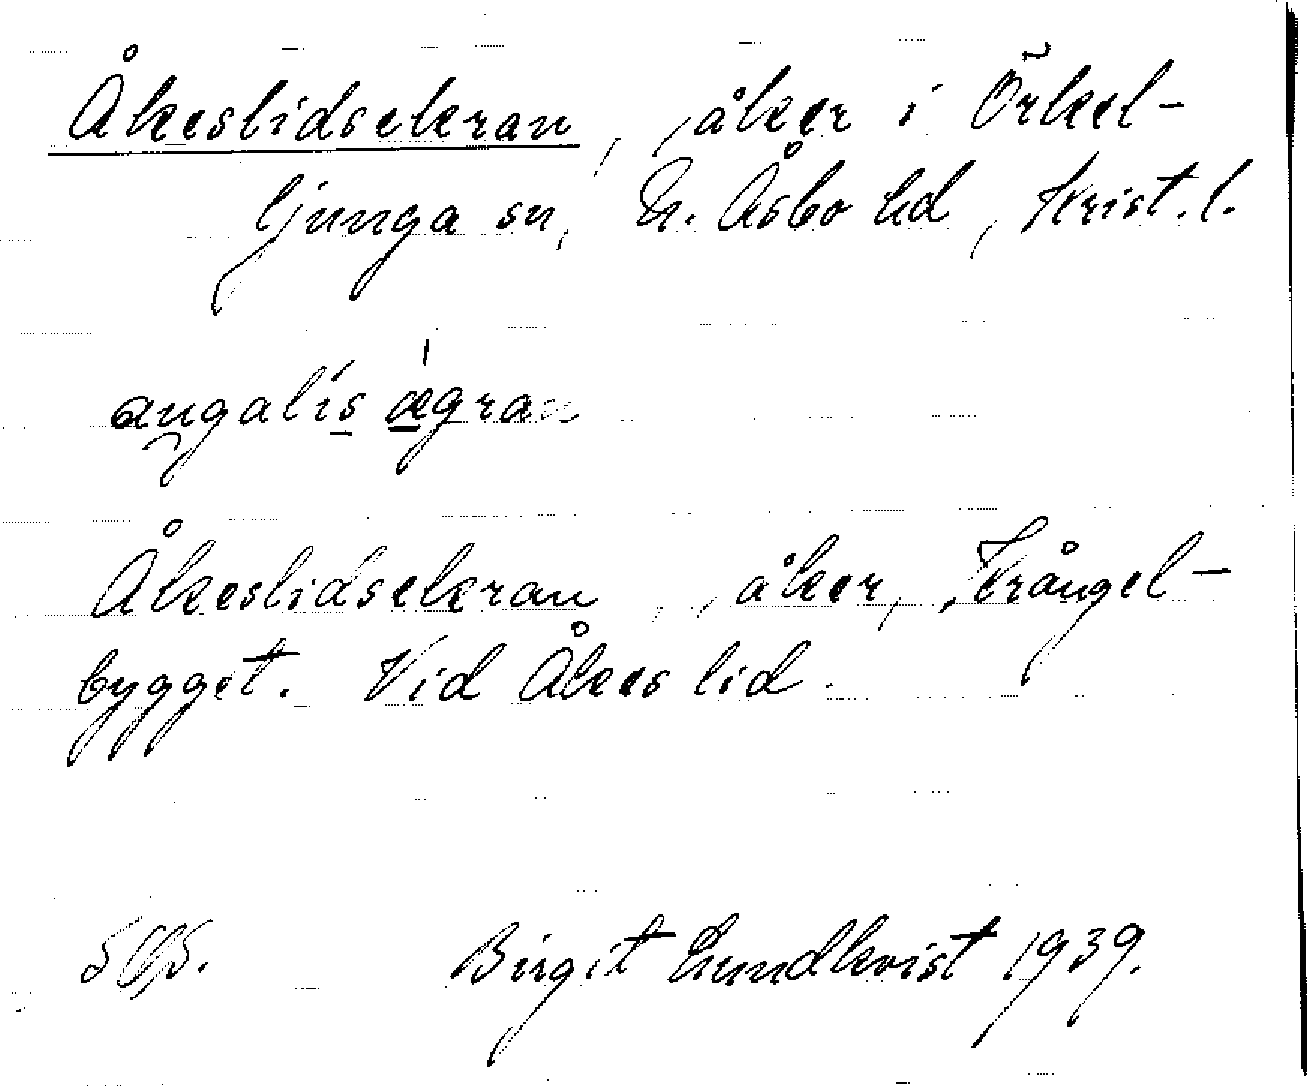 Åkeslidsekran, åker i Örkel-
ljunga sn, N. Åsbo hd, Krist. l.
angalis ægran
Åkeslidsekran, åker, Trångel-
bygget. Vid Åkes lid.
Birgit Lundkvist 1939.